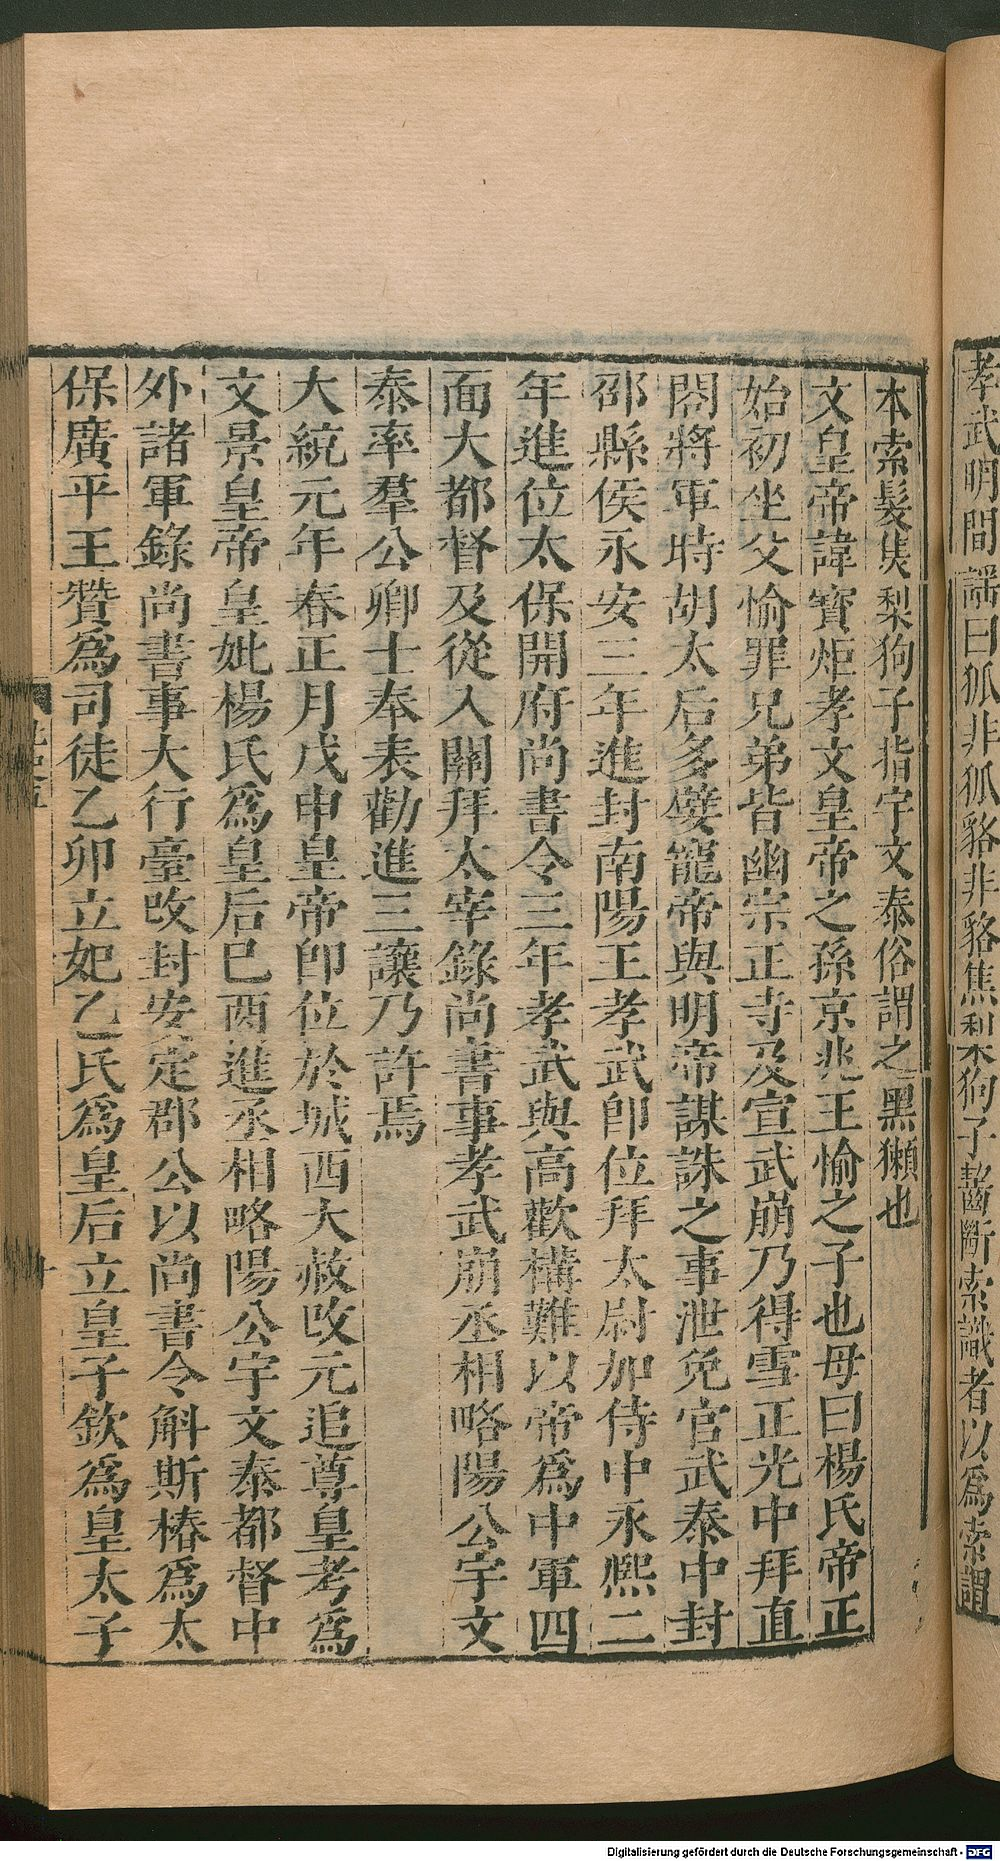 孝武明間謡曰狐非狐貉非貉焦梨狗子齧斷索識者以為索謂
本索髮焦梨狗子指宇文泰俗謂之黑獺也
文皇帝諱寶炬孝文皇帝之孫京兆王愉之子也母曰楊氏帝正
始初坐父愉罪兄弟皆幽宗正寺及宣武崩乃得雪正光中拜直
閤將軍時胡太后多嬖寵帝與明帝謀誅之事泄免官武泰中封
邵縣侯永安三年進封南陽王孝武即位拜太尉加侍中永熙二
年進位太保開府尚書令三年孝武與高歡構難以帝爲中軍四
面大都督及從入關拜太宰錄尚書事孝武崩丞相略陽公宇文
泰率羣公卿士奉表勸進三讓乃許焉
大統元年春正月戊申皇帝即位於城西大赦改元追尊皇考爲
文景皇帝皇妣楊氏爲皇后巳酉進丞相略陽公宇文泰都督中
外諸軍錄尚書事大行臺改封安定郡公以尚書令斛斯椿爲太
保廣平王贊爲司徒乙卯立妃乙氏爲皇后立皇子欽爲皇太子
Digitalisierung gefördert durch die Deutsche Forschungsgemeinschaft - DFG